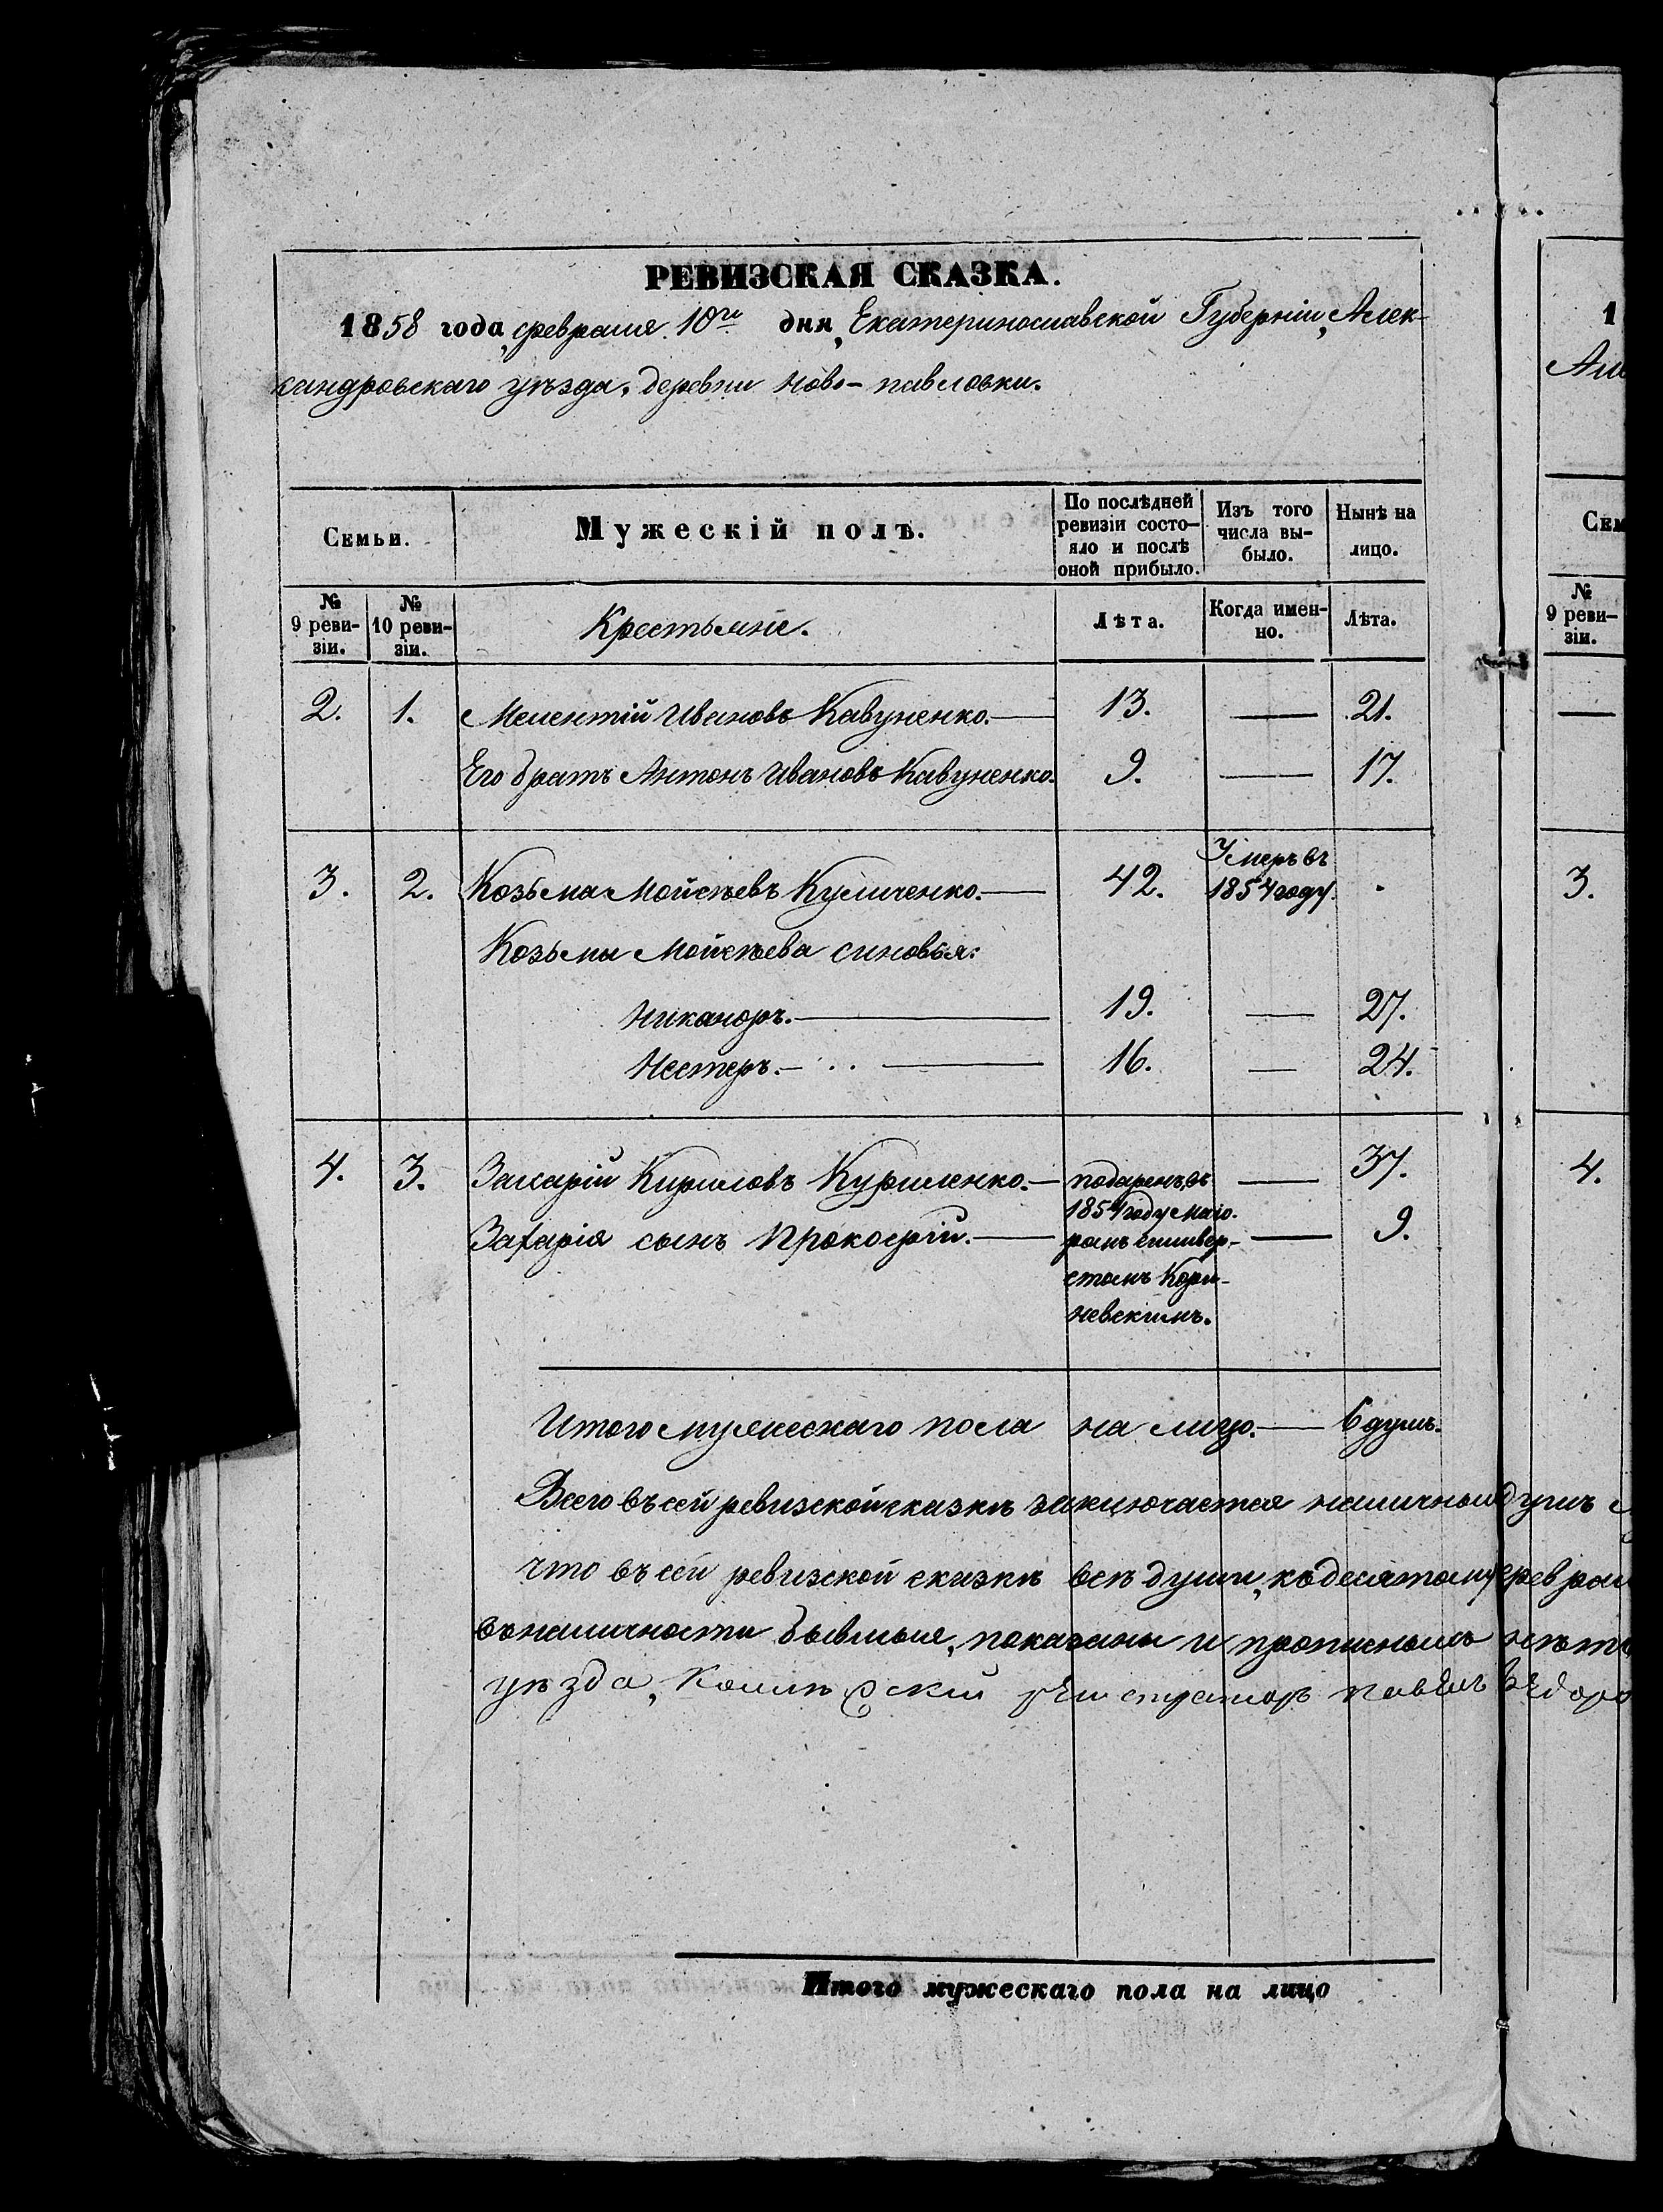 РЕВИЗСКАЯ СКАЗКА.
1858 года, февраля 10го дня, Екатеринославской Губерніи, Алек-
сандровскаго уѣзда, деревни Ново-павловки.
Семьи.
Мужескій полъ.
По послѣдней ревизіи состо-
яло и послѣ оной прибыло.
Изъ того числа вы-
было.
Нынѣ на лицо.
№ 9 реви-
зіи.
№ 10 реви-
зіи.
Крестьяне.
Лѣта.
Когда имен-
но.
Лѣта.
2. 1. Мелентій Ивановъ Кавуненко.— 13. — 21.
Его братъ Антонъ Ивановъ Кавуненко. 9. — 17.
3. 2. Козьма Мойсѣевъ Куличенко.— 42. Умеръ въ 1854 году.
Козьмы Мойсѣева синовья:
Никаноръ.— 19. — 27.
Нестеръ.— 16. — 24.
4. 3. Захарій Кириловъ Куриленко.— подаренъ въ — 37.
1854 году маіо-
Захарія сынъ Прокофій.— ромъ Селивер- — 9.
стомъ Кори-
невскимъ.
Итого мужескаго пола на лицо.— 6 душъ.
Всего въ сей ревизской сказкѣ заключается наличныхъ душъ
что въ сей ревизской сказкѣ всѣ души, къ десятому феврал
въ наличности бывшыя, показаны и прописныхъ нѣтъ
уѣзда, Колл регистраторъ Павелъ Ѳедоро
Итого мужескаго пола на лицо
1
Але
Сем
№
9 реви-
зіи.
—
3.
4.